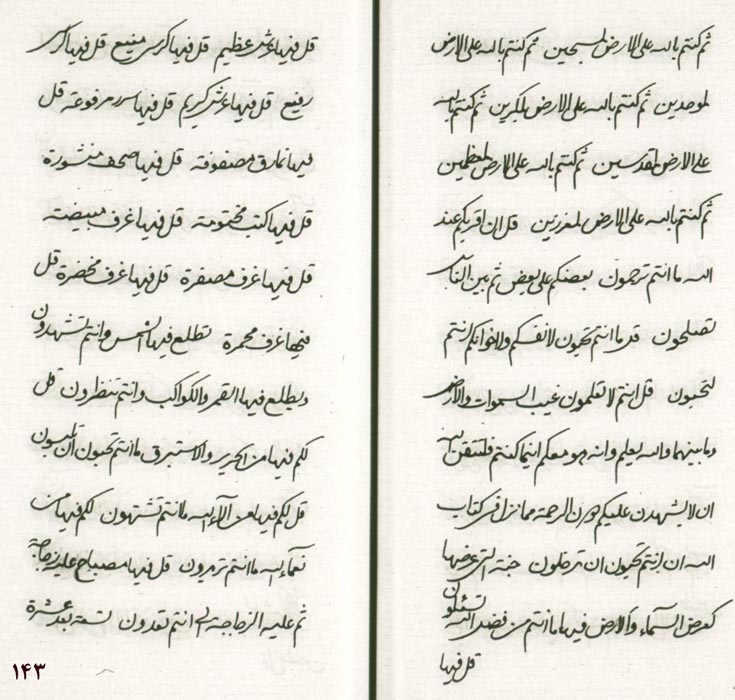 ثم كنتم بالله على الارض لمسبحين ثم كنتم بالله على الارض
لموحدين ثم كنتم بالله على الارض لمكبرين ثم كنتم بالله
على الارض لمقدسين ثم كنتم بالله على الارض لمعظمين
ثم كنتم بالله على الارض لمعززين قل ان اقربكم عند
الله ما انتم ترحمون بعضكم على بعض ثم بين الناس
تصلحون قل ما انتم تحبون لانفسكم ولاخوانكم انتم
لتحبون قل انتم لا تعلمون غيب السموات والارض
وما بينهما والله يعلم وانه هو معكم اينما كنتم فلتتقن الله
ان لا يشهدن عليكم دون الرحمة مما نزل فى كتاب
الله ان انتم تحبون ان تدخلون جنة التى عرضها
كعرض السماء والارض فيها ما انتم من فضل الله تسئلون
قل فيها
قل فيها عرش عظيم قل فيها كرسى منيع قل فيها كرسى
رفيع قل فيها عرش كريم قل فيها سرر مرفوعة قل
فيها نمارق مصفوفة قل فيها صحف منشورة
قل فيها كتب مختومة قل فيها غرف مبيضة
قل فيها غرف مصفرة قل فيها غرف مخضرة قل
فيها غرف محمرة تطلع فيها الشمس وانتم تشهدون
ويطلع فيها القمر والكواكب وانتم تنظرون قل
لكم فيها من الحرير والاستبرق ما انتم تحبون ان تلبسون
قل لكم فيها من آلاء الله ما انتم تشتهون لكم فيها من
نعماء الله ما انتم تريدون قل فيها مصباح عليه زجاجة
ثم عليه الزجاجة الى انتم تعدون تسعة بعد عشرة
۱۴۳